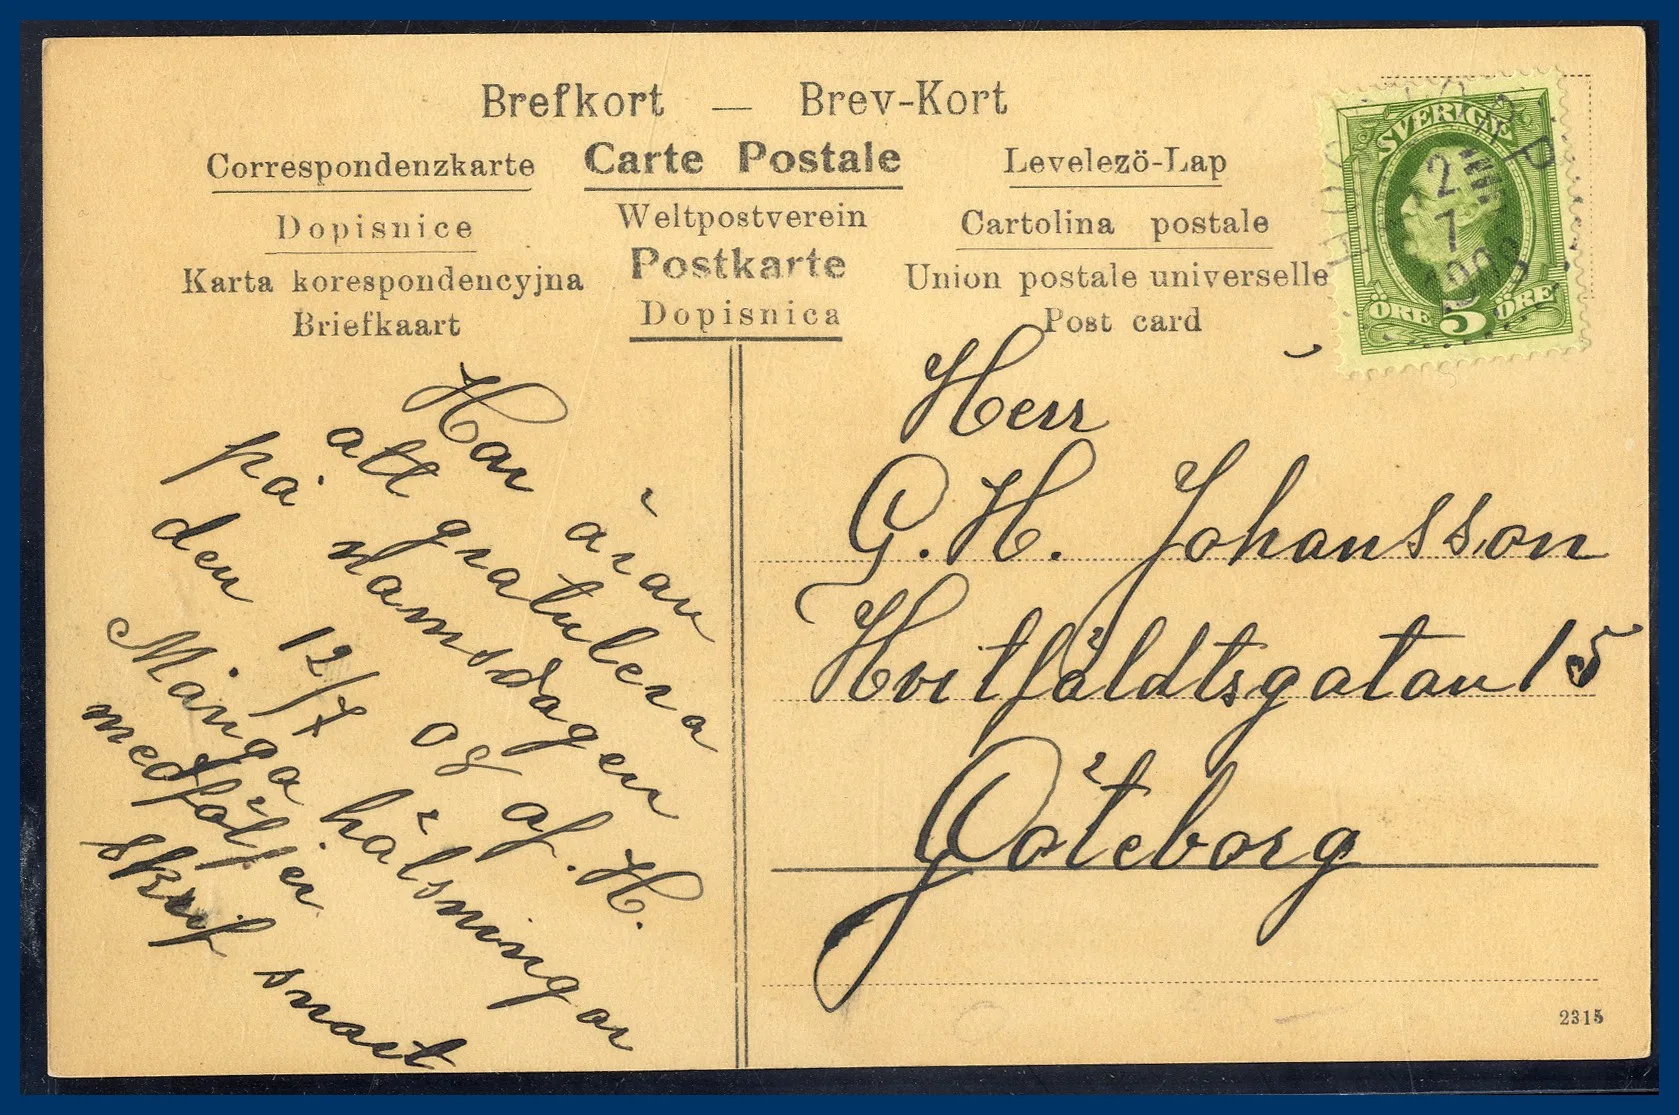 Brefkort — Brev-Kort
Correspondenzkarte
Carte Postale
Levelező-Lap
Dopisnice
Weltpostverein
Cartolina postale
Karta korespondencyjna
Postkarte
Union postale universelle
Briefkaart
Dopisnica
Post card
SVERIGE
12
7
ÖRE 5 ÖRE
Har äran
att gratulera
på namnsdagen
den 12/7 og af. H.
Många hälsningar
medföljer
skrif snart
Herr
G. H. Johansson
Hvitfäldtsgatan 15
Göteborg
2315